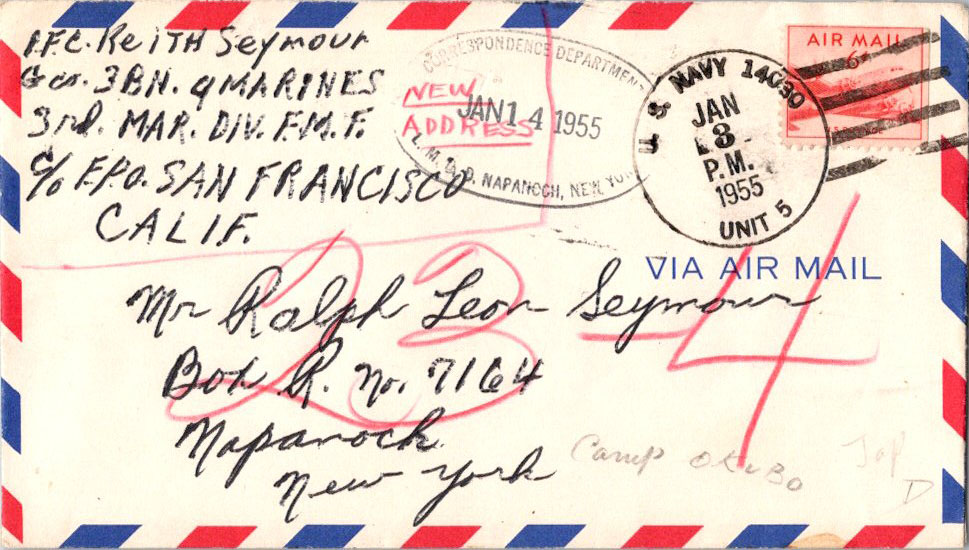 P.F.C. KeitH Seymour
G co. 3 BN. 9 MARINES
3rd. MAR. DIV. F.M.F.
c/o F.P.O. SAN FRANCISCO
CALIF.
CORRESPONDENCE DEPARTMENT
NEW
ADDRESS
JAN 14 1955
NAPANOCH, NEW YORK
U. S. NAVY 14030
JAN
3
P.M.
1955
UNIT 5
AIR MAIL
6¢
VIA AIR MAIL
23-4
Mr Ralph Leon Seymour
Box R. No. 7164
Napanock
New York
Camp
Jap
D